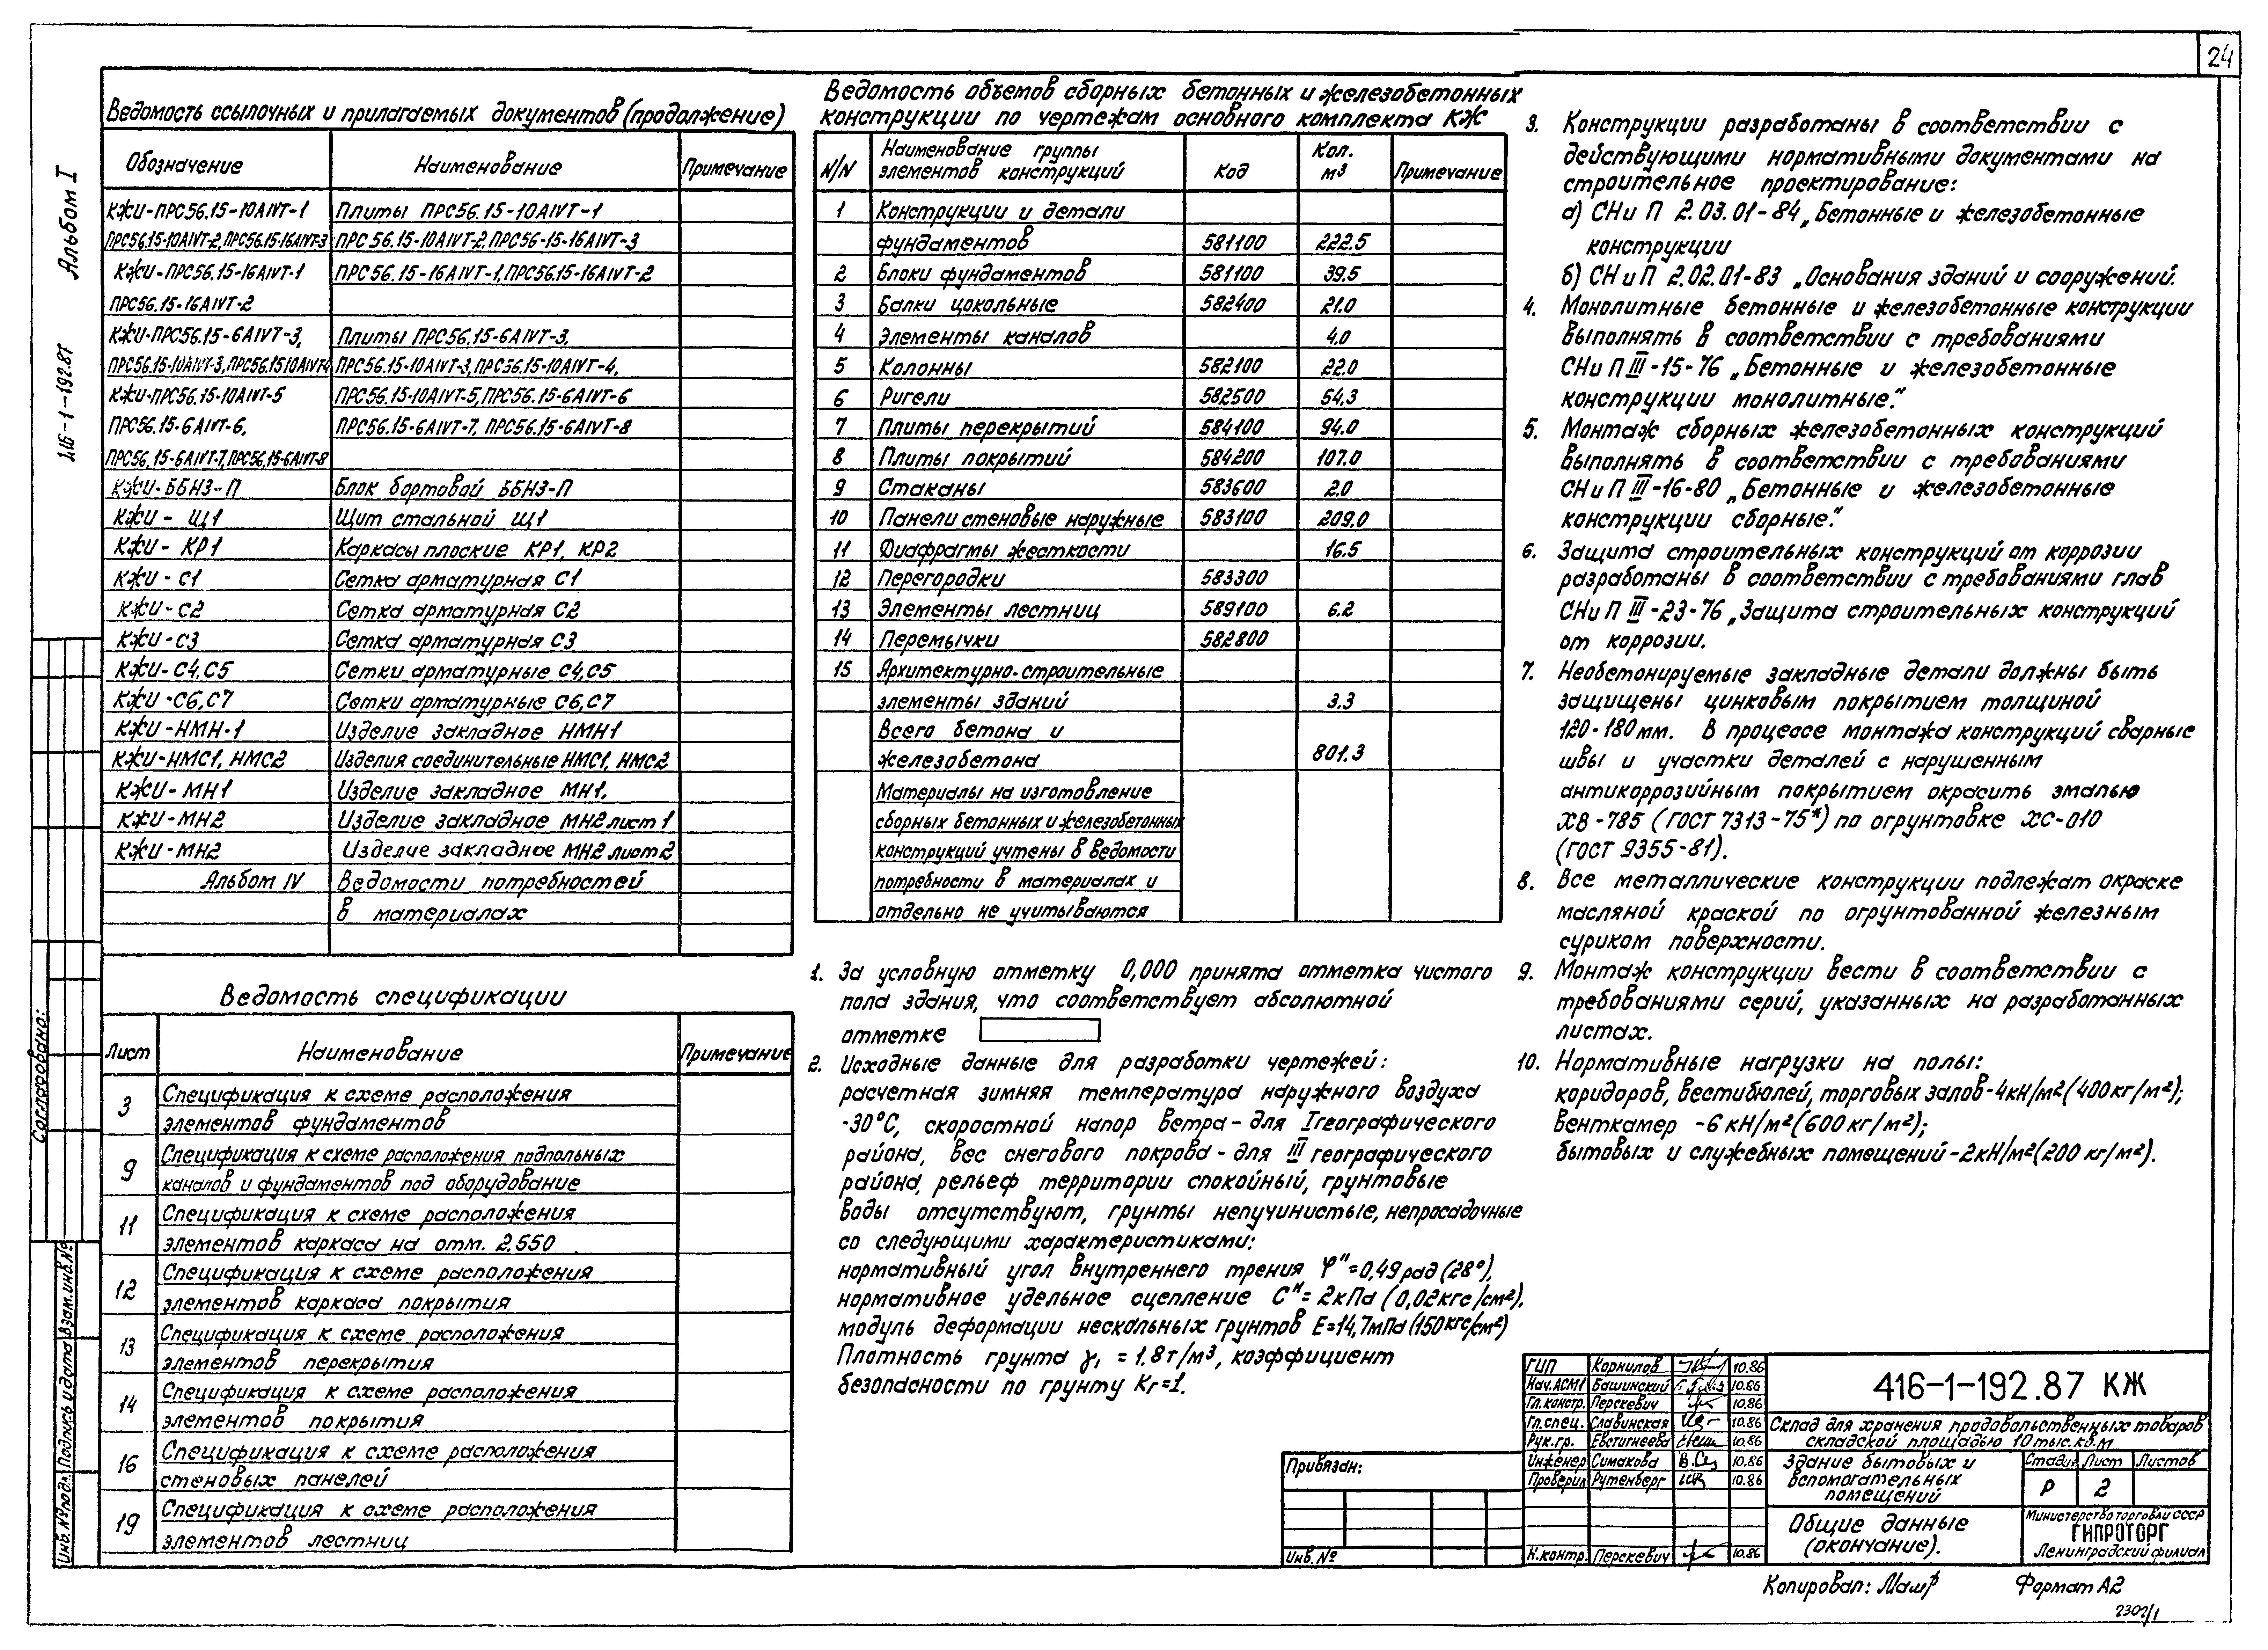 24
Альбом I
416-1-192.87
Ведомость ссылочных и прилагаемых документов (продолжение)
Обозначение Наименование Примечание
КЖИ-ПРС56.15-10АIVТ-1 Плиты ПРС56.15-10АIVТ-1
ПРС56.15-10АIVТ-2, ПРС56.15-16АIVТ-3 ПРС56.15-10АIVТ-2, ПРС56-15-16АIVТ-3
КЖИ-ПРС56.15-16АIVТ-1 ПРС56.15-16АIVТ-1, ПРС56.15-16АIVТ-2
ПРС56.15-16АIVТ-2
КЖИ-ПРС56.15-6АIVТ-3, Плиты ПРС56.15-6АIVТ-3,
ПРС56.15-10АIVТ-3, ПРС56.15 10АIVТ-4 ПРС56.15-10АIVТ-3, ПРС56.15-10АIVТ-4,
КЖИ-ПРС56.15-10АIVТ-5 ПРС56.15-10АIVТ-5, ПРС56.15-6АIVТ-6
ПРС56.15-6АIVТ-6, ПРС56.15-6АIVТ-7, ПРС56.15-6АIVТ-8
ПРС56.15-6АIVТ-7, ПРС56.15-6АIVТ-8
КЖИ-ББНЗ-П Блок бортовой ББНЗ-П
КЖИ-Щ1 Щит стальной Щ1
КЖИ-КР1 Каркасы плоские КР1, КР2
КЖИ-С1 Сетка арматурная С1
КЖИ-С2 Сетка арматурная С2
КЖИ-С3 Сетка арматурная С3
КЖИ-С4, С5 Сетки арматурные С4, С5
КЖИ-С6, С7 Сетки арматурные С6, С7
КЖИ-НМН-1 Изделие закладное НМН1
КЖИ-НМС1, НМС2 Изделия соединительные НМС1, НМС2
КЖИ-МН1 Изделие закладное МН1,
КЖИ-МН2 Изделие закладное МН2 лист 1
КЖИ-МН2 Изделие закладное МН2 лист 2
Альбом IV Ведомости потребностей
в материалах
Ведомость спецификации
Лист Наименование Примечание
3 Спецификация к схеме расположения
элементов фундаментов
9 Спецификация к схеме расположения подпольных
каналов и фундаментов под оборудование
11 Спецификация к схеме расположения
элементов каркаса на отм. 2.550
12 Спецификация к схеме расположения
элементов каркаса покрытия
13 Спецификация к схеме расположения
элементов перекрытия
14 Спецификация к схеме расположения
элементов покрытия
16 Спецификация к схеме расположения
стеновых панелей
19 Спецификация к схеме расположения
элементов лестниц
Ведомость объемов сборных бетонных и железобетонных
конструкции по чертежам основного комплекта КЖ
N/N Наименование группы элементов конструкций Код Кол. м³ Примечание
1 Конструкции и детали
фундаментов 581100 222.5
2 Блоки фундаментов 581100 39.5
3 Балки цокольные 582400 21.0
4 Элементы каналов 4.0
5 Колонны 582100 22.0
6 Ригели 582500 54.3
7 Плиты перекрытий 584100 94.0
8 Плиты покрытий 584200 107.0
9 Стаканы 583600 2.0
10 Панели стеновые наружные 583100 209.0
11 Диафрагмы жесткости 16.5
12 Перегородки 583300
13 Элементы лестниц 589100 6.2
14 Перемычки 582800
15 Архитектурно-строительные
элементы зданий 3.3
Всего бетона и
железобетона 801.3
Материалы на изготовление
сборных бетонных и железобетонных
конструкций учтены в ведомости
потребности в материалах и
отдельно не учитываются
1. За условную отметку 0,000 принята отметка чистого
пола здания, что соответствует абсолютной
отметке
2. Исходные данные для разработки чертежей:
расчетная зимняя температура наружного воздуха
-30°С, скоростной напор ветра - для I географического
района, вес снегового покрова - для III географического
района, рельеф территории спокойный, грунтовые
воды отсутствуют, грунты непучинистые, непросадочные
со следующими характеристиками:
нормативный угол внутреннего трения φᴴ=0,49 рад (28°),
нормативное удельное сцепление Сᴴ=2кПа (0,02кгс/см²),
модуль деформации нескальных грунтов Е=14,7мПа (150кгс/см²)
Плотность грунта γ₁ = 1.8т/м³, коэффициент
безопасности по грунту Кг=1.
3. Конструкции разработаны в соответствии с
действующими нормативными документами на
строительное проектирование:
а) СНиП 2.03.01-84 „Бетонные и железобетонные
конструкции
б) СНиП 2.02.01-83 „Основания зданий и сооружений.
4. Монолитные бетонные и железобетонные конструкции
выполнять в соответствии с требованиями
СНиП III-15-76 „Бетонные и железобетонные
конструкции монолитные."
5. Монтаж сборных железобетонных конструкций
выполнять в соответствии с требованиями
СНиП III-16-80 „Бетонные и железобетонные
конструкции сборные."
6. Защита строительных конструкций от коррозии
разработаны в соответствии с требованиями глав
СНиП III-23-76 „Защита строительных конструкций
от коррозии.
7. Необетонируемые закладные детали должны быть
защищены цинковым покрытием толщиной
120-180мм. В процессе монтажа конструкций сварные
швы и участки деталей с нарушенным
антикоррозийным покрытием окрасить эмалью
ХВ-785 (ГОСТ 7313-75*) по огрунтовке ХС-010
(ГОСТ 9355-81).
8. Все металлические конструкции подлежат окраске
масляной краской по огрунтованной железным
суриком поверхности.
9. Монтаж конструкции вести в соответствии с
требованиями серий, указанных на разработанных
листах.
10. Нормативные нагрузки на полы:
коридоров, вестибюлей, торговых залов-4кН/м² (400кг/м²);
венткамер -6кН/м² (600кг/м²);
бытовых и служебных помещений-2кН/м² (200кг/м²).
Согласовано:
Инв. № подл. Подпись и дата Взам. инв. №
Привязан:
Инв. №
ГИП Корнилов 10.86
Нач. АСМ1 Башинский 10.86
Гл. констр. Перскевич 10.86
Гл. спец. Славинская 10.86
Рук. гр. Евстигнеева 10.86
Инженер Симакова 10.86
Проверил Рутенберг 10.86
Н. контр. Перскевич 10.86
416-1-192.87 КЖ
Склад для хранения продовольственных товаров
складской площадью 10 тыс. кв. м
Здание бытовых и
вспомогательных
помещений
Стадия Лист Листов
Р 2
Общие данные
(окончание).
Министерство торговли СССР
ГИПРОТОРГ
Ленинградский филиал
Копировал: Формат А2
2302/1